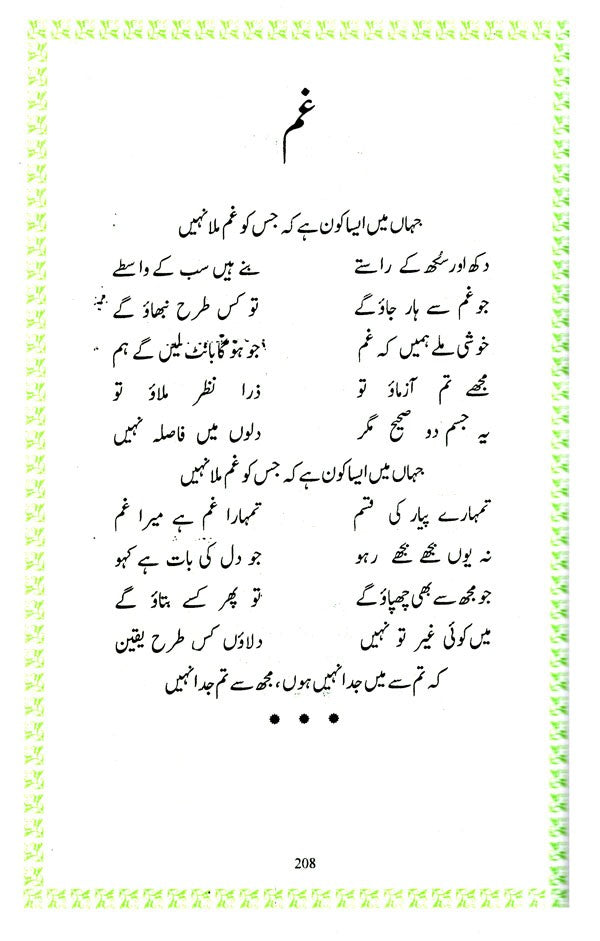 غم
جہاں میں ایسا کون ہے کہ جس کو غم ملا نہیں
دکھ اور سُکھ کے راستے بنے ہیں سب کے واسطے
جو غم سے ہار جاؤ گے تو کس طرح نبھاؤ گے
خوشی ملے ہمیں کہ غم جو ہو گا بانٹ لیں گے ہم
مجھے تم آزماؤ تو ذرا نظر ملاؤ تو
یہ جسم دو صحیح مگر دلوں میں فاصلہ نہیں
جہاں میں ایسا کون ہے کہ جس کو غم ملا نہیں
تمہارے پیار کی قسم تمہارا غم ہے میرا غم
نہ یوں بجھے بجھے رہو جو دل کی بات ہے کہو
جو مجھ سے بھی چھپاؤ گے تو پھر کسے بتاؤ گے
میں کوئی غیر تو نہیں دلاؤں کس طرح یقین
کہ تم سے میں جدا نہیں ہوں، مجھ سے تم جدا نہیں
208